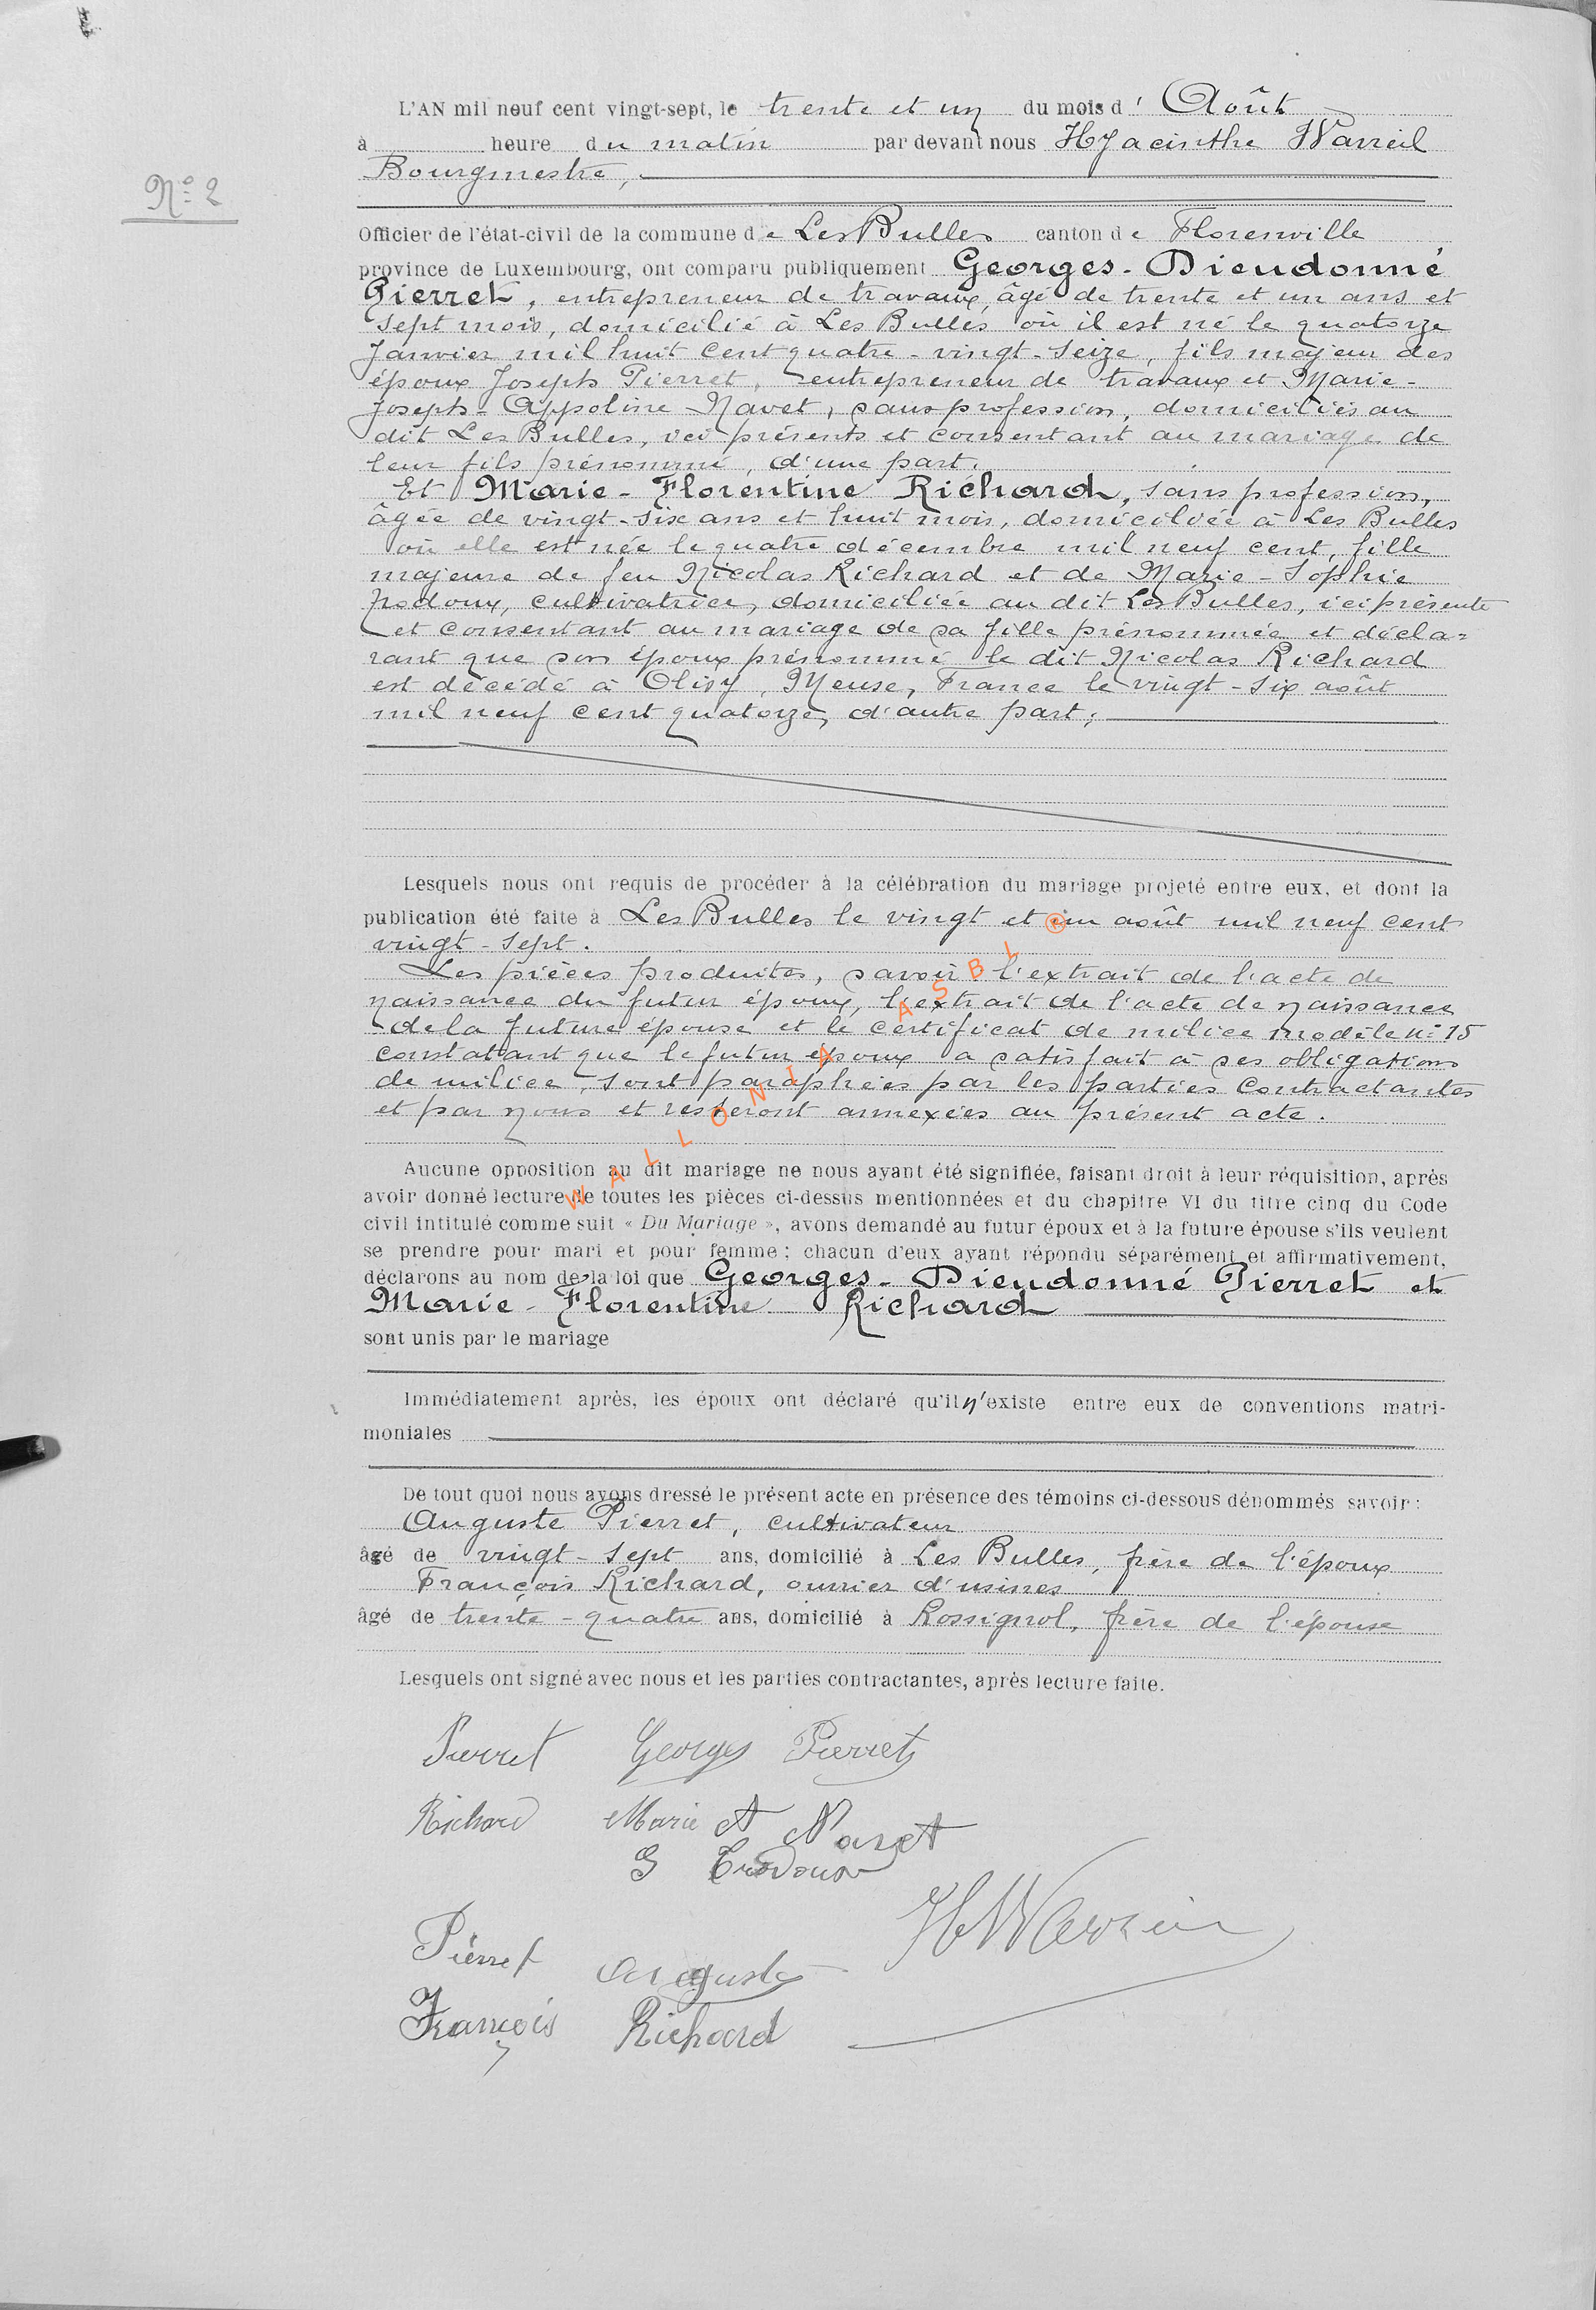 L'AN mil neuf cent vingt-sept, le trente et un du mois d' Août
à heure du matin par devant nous Hyacinthe
Bourgmestre,
N° 2
Officier de l'état-civil de la commune de Les Bulles canton de Florenville
province de Luxembourg, ont comparu publiquement Georges-Dieudonné
Pierret, entrepreneur de travaux, âgé de trente et un ans et
sept mois, domicilié à Les Bulles où il est né le quatorze
Janvier mil huit cent quatre-vingt-seize, fils majeur des
époux Joseph Pierret, entrepreneur de travaux et Marie-
Joseph-Appoline Navet, sans profession, domiciliés au
dit Les Bulles, ici présents et consentant au mariage de
leur fils prénommé, d'une part.
Et Marie-Florentine Richard, sans profession,
âgée de vingt-six ans et huit mois, domiciliée à Les Bulles
où elle est née le quatre décembre mil neuf cent, fille
majeure de feu Nicolas Richard et de Marie-Sophie
cultivatrice, domiciliée au dit Les Bulles, ici présente
et consentant au mariage de sa fille prénommée et décla=
rant que son époux prénommé le dit Nicolas Richard
est décédé à Olizy, Meuse, France le vingt-six août
mil neuf cent quatorze, d'autre part;
Lesquels nous ont requis de procéder à la célébration du mariage projeté entre eux, et dont la
publication été faite à Les Bulles le vingt et un août mil neuf cent
vingt-sept.
Les pièces produites, savoir: l'extrait de l'acte de
naissance du futur époux, l'extrait de l'acte de naissance
de la future épouse et le certificat de milice modèle n° 15
constatant que le futur époux a satisfait à ses obligations
de milice, sont paraphées par les parties contractantes
et par nous et resteront annexées au présent acte.
WALLONIA ASBL ®
Aucune opposition au dit mariage ne nous ayant été signifiée, faisant droit à leur réquisition, après
avoir donné lecture de toutes les pièces ci-dessus mentionnées et du chapitre VI du titre cinq du Code
civil intitulé comme suit « Du Mariage », avons demandé au futur époux et à la future épouse s'ils veulent
se prendre pour mari et pour femme; chacun d'eux ayant répondu séparément et affirmativement,
déclarons au nom de la loi que Georges-Dieudonné Pierret et
Marie-Florentine Richard
sont unis par le mariage
Immédiatement après, les époux ont déclaré qu'il n'existe entre eux de conventions matri-
moniales
De tout quoi nous avons dressé le présent acte en présence des témoins ci-dessous dénommés savoir:
Auguste Pierret, cultivateur
âgé de vingt-sept ans, domicilié à Les Bulles, frère de l'époux
François Richard, ouvrier d'usines
âgé de trente-quatre ans, domicilié à Rossignol, frère de l'épouse
Lesquels ont signé avec nous et les parties contractantes, après lecture faite.
Pierret Georges Pierret
Richard Marie A Navet
S
Pierret Auguste
François Richard